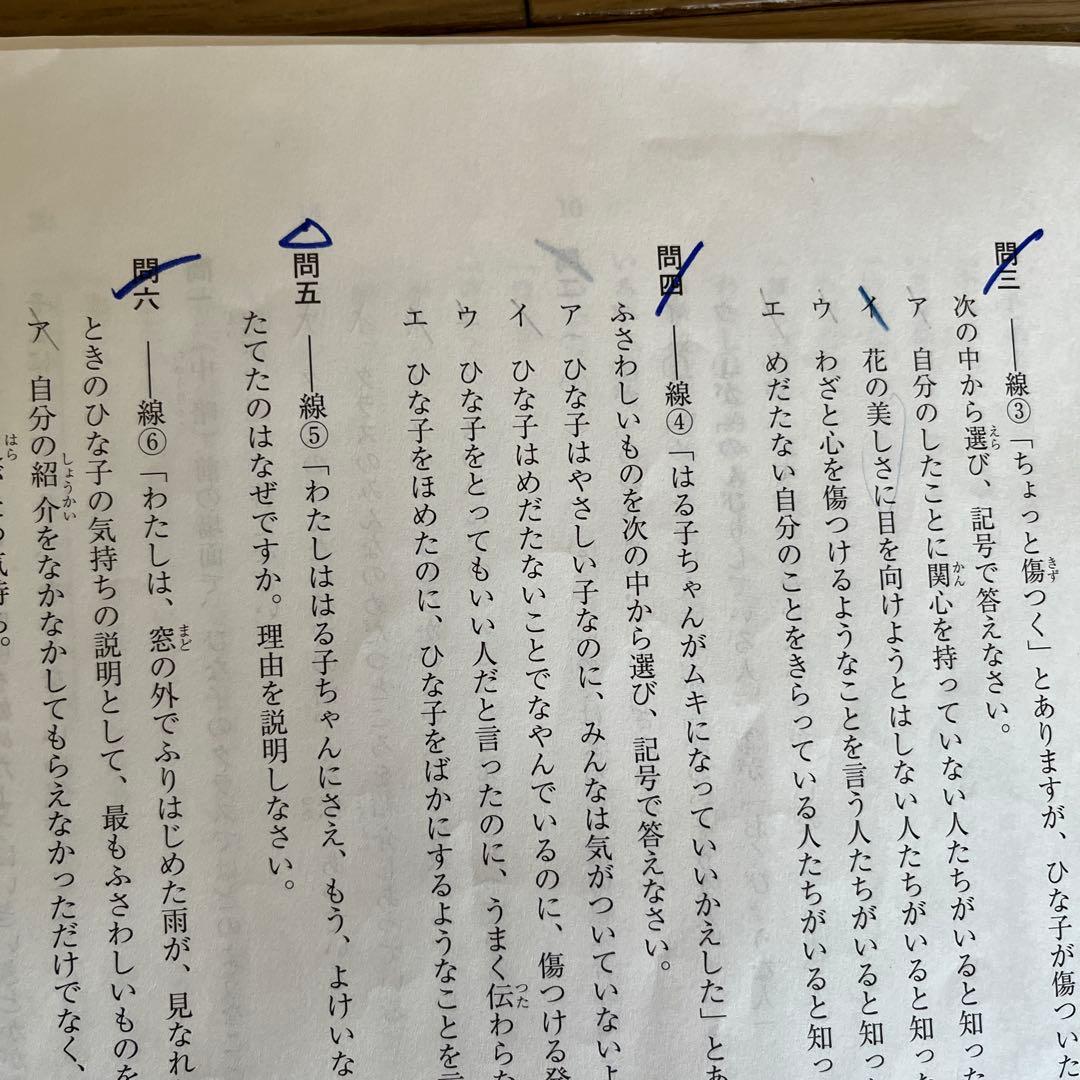 問三 ――線③「ちょっと傷つく」とありますが、ひな子が傷ついた
次の中から選び、記号で答えなさい。
ア 自分のしたことに関心を持っていない人たちがいると知った
イ 花の美しさに目を向けようとはしない人たちがいると知っ
ウ わざと心を傷つけるようなことを言う人たちがいると知っ
エ めだたない自分のことをきらっている人たちがいると知っ
問四 ――線④「はる子ちゃんがムキになっていいかえした」とあ
ふさわしいものを次の中から選び、記号で答えなさい。
ア ひな子はやさしい子なのに、みんなは気がついていないよ
イ ひな子はめだたないことでなやんでいるのに、傷つける発
ウ ひな子をとってもいい人だと言ったのに、うまく伝わらた
エ ひな子をほめたのに、ひな子をばかにするようなことを言
問五 ――線⑤「わたしははる子ちゃんにさえ、もう、よけいな
たてたのはなぜですか。理由を説明しなさい。
問六 ――線⑥「わたしは、窓の外でふりはじめた雨が、見なれ
ときのひな子の気持ちの説明として、最もふさわしいものを
ア 自分の紹介をなかなかしてもらえなかっただけでなく、